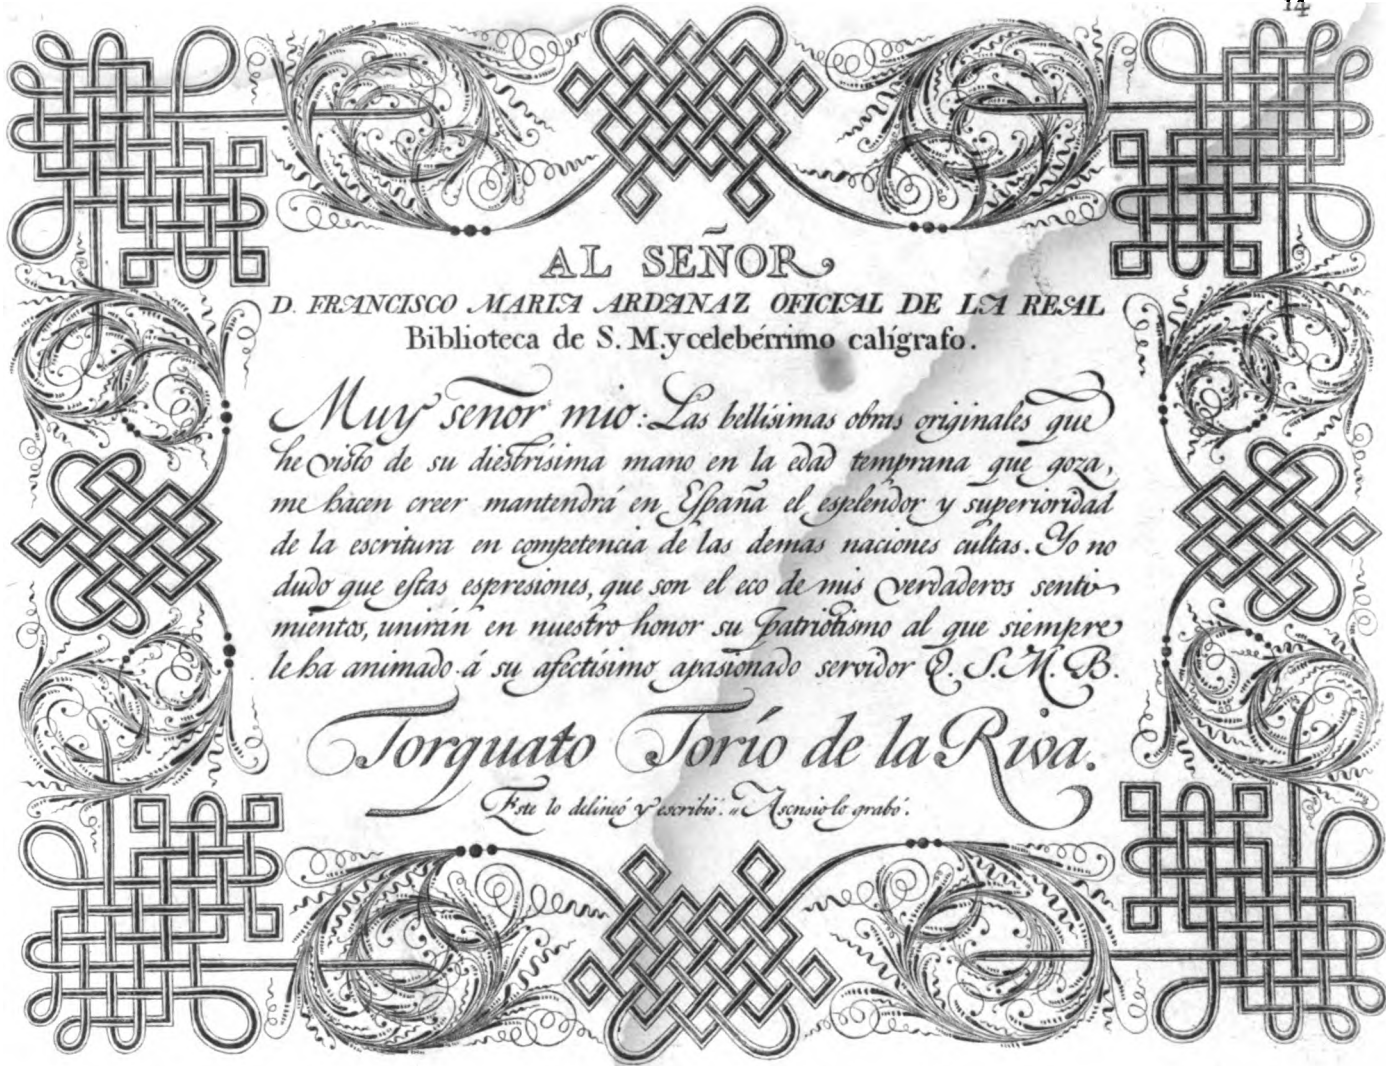 14
AL SEÑOR
D. FRANCISCO MARIA ARDANAZ OFICIAL DE LA REAL
Biblioteca de S. M. y celebérrimo calígrafo.
Muy señor mio: Las bellísimas obras originales que
he visto de su diestrísima mano en la edad temprana que goza,
me hacen creer mantendrá en España el esplendor y superioridad
de la escritura en competencia de las demas naciones cultas. Yo no
dudo que estas espresiones, que son el eco de mis verdaderos senti-
mientos, unirán en nuestro honor su patriotismo al que siempre
le ha animado á su afectísimo apasionado servidor Q. S. M. B.
Torquato Torío de la Riva.
Este lo delineó y escribió. „ Asensio lo grabó.